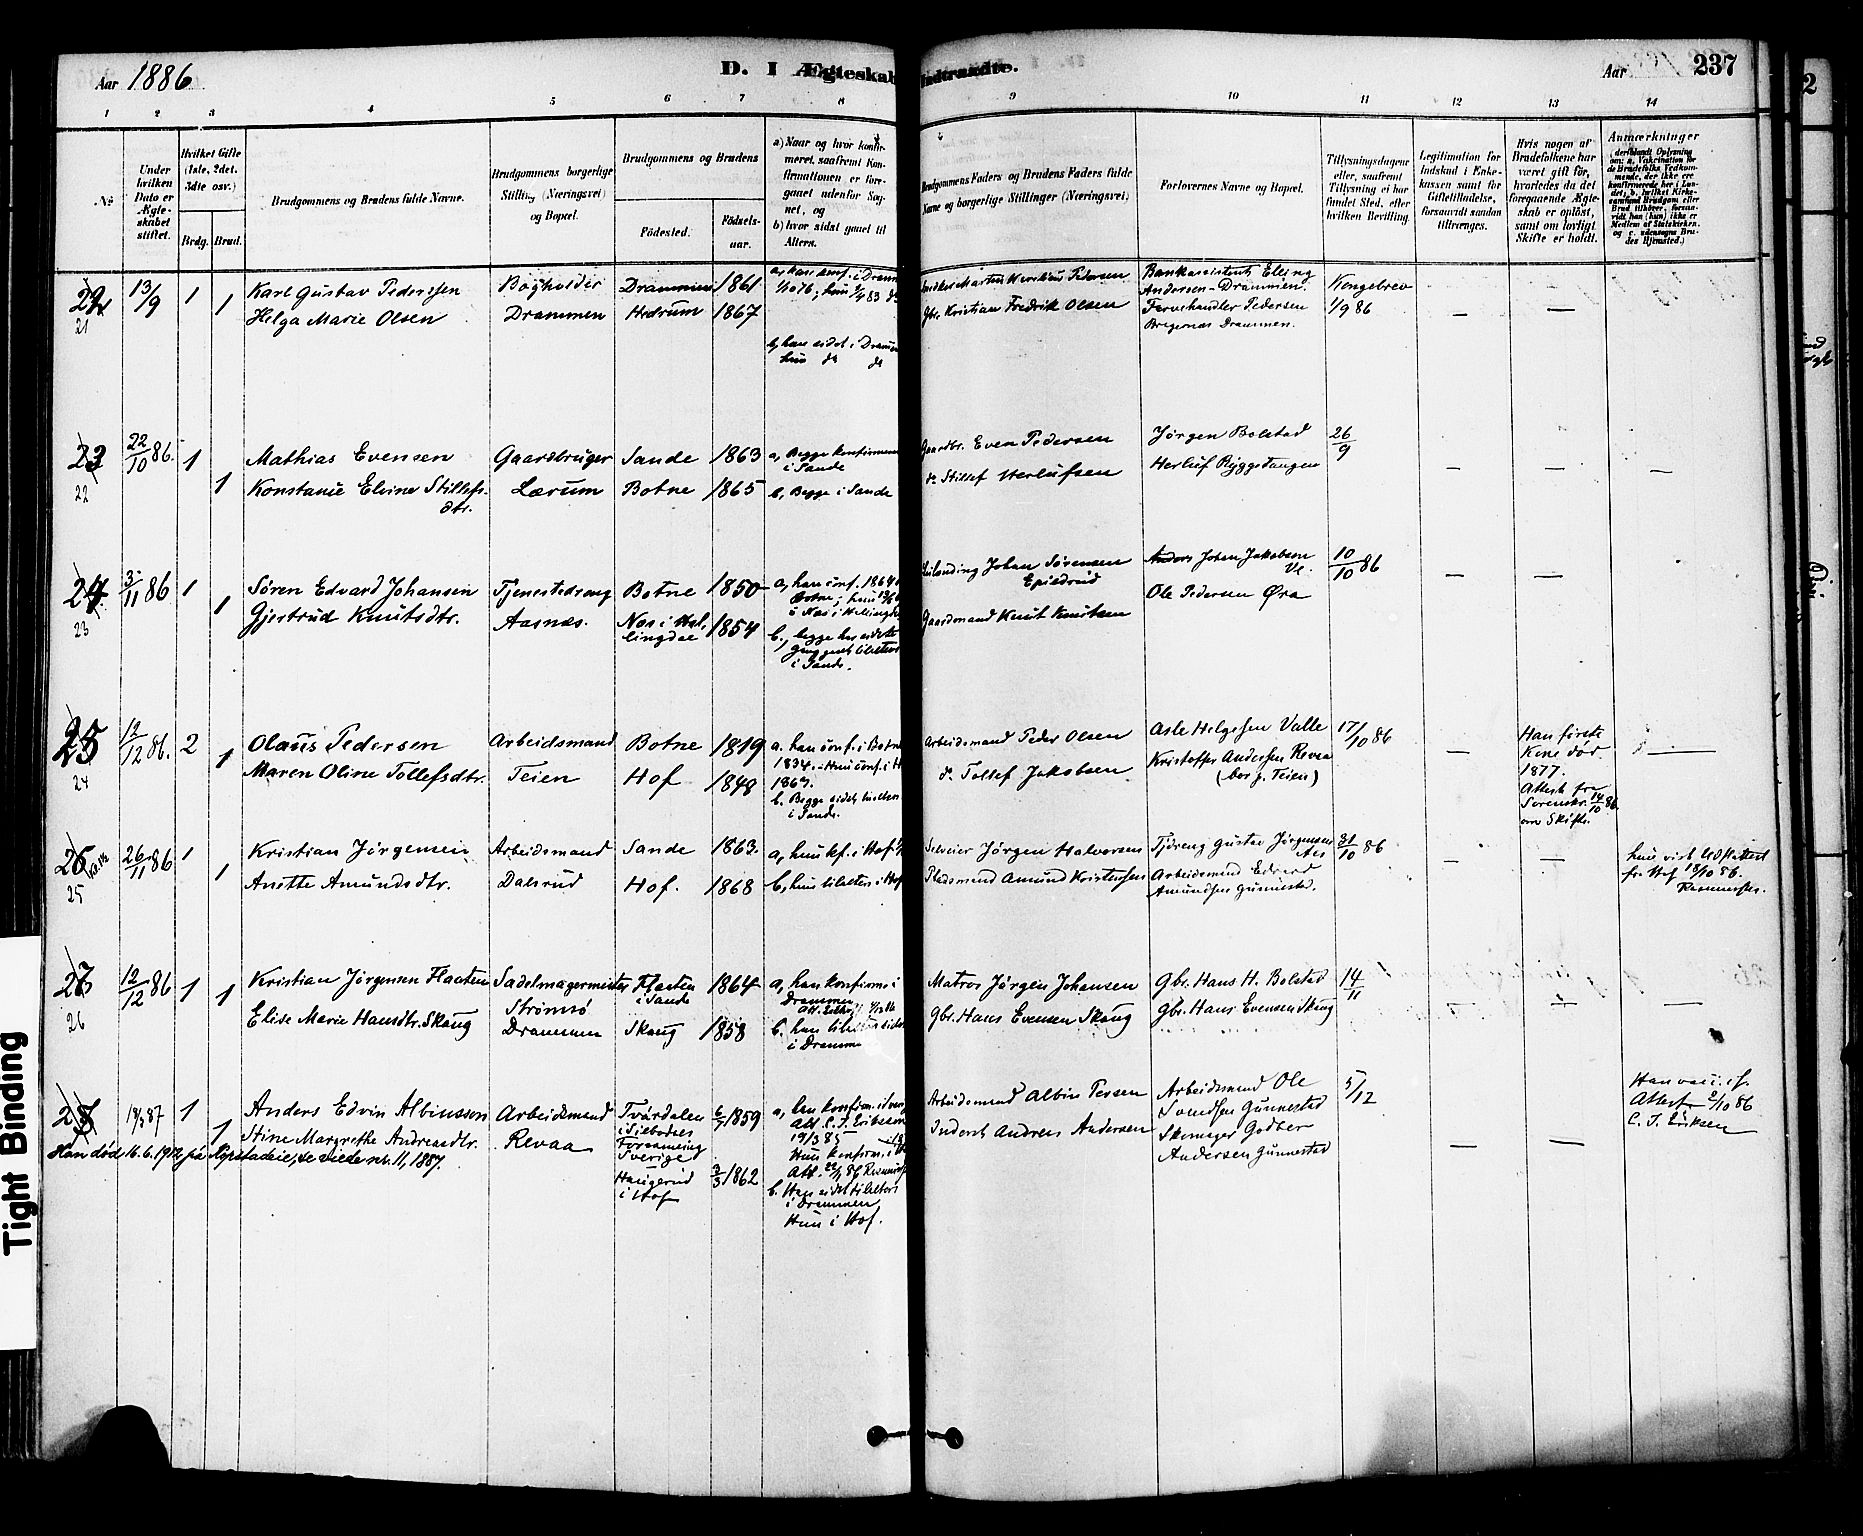 Aar 1886
D. I Ægteskab Indtraadte.
Aar 237
1 2 3 4 5 6 7 8 9 10 11 12 13 14
No
Under hvilken Dato er Ægteskabet stiftet.
Hvilket Gifte (1ste, 2det, 3die osv.)
Brdg. Brud.
Brudgommens og Brudens fulde Navne.
Brudgommens borgerlige Stilling (Næringsvei) og Bopæl.
Brudgommens og Brudens
Fødested.
Fødselsaar.
a) Naar og hvor konfirmeret, saafremt Konfirmationen er foregaaet udenfor Sognet, og
b) hvor sidst gaaet til Alters.
Brudgommens Faders og Brudens Faders fulde Navne og borgerlige Stillinger (Næringsvei)
Forlovernes Navne og Bopæl.
Tillysningsdagene eller, saafremt Tillysning ei har fundet Sted, efter hvilken Bevilling.
Legitimation for Indskud i Enkekassen samt for Giftetilladelse, forsaavidt saadan tiltrænges.
Hvis nogen af Brudefolkene har været gift før, hvorledes da det foregaaende Ægteskab er opløst, samt om lovligt Skifte er holdt.
Anmærkninger
21
13/9
1 1
Karl Gustav Pederssen
Helga Marie Olsen
Bogholder
Drammen
Drammen 1861
Hedrum 1867
Gbr. Kristian Fredrik Olsen
Bankassistent Elling
Andersen - Drammen.
Farvehandler Pedersen
Bragernæs Drammen.
Kongebrev
1/9 86
23
22
22/10 86.
1 1
Mathias Evensen
Konstanse Elvine Stillefs-
dtr.
Gaardbruger
Lærum
Sande 1863
Botne 1865
a, Begge konfirmeret
i Sande
b, Begge i Sande
Gaardbr. Even Pedersen
do Stillef Herlufsen
Jørgen Bolstad
Herluf Byggetangen
26/9
24
23
3/11 86
1 1
Søren Edvard Johansen
Gjertrud Knutsdtr.
Tjenestedreng
Aasnæs.
Botne 1850
Nes i Hal-
lingdal 1854
a, han conf. 1864 i
Botne; hun
i Nes i Hallingdal
b., begge her sidste
Gang gaaet tilalters
i Sande.
Johan Sørensen
Gaardmand Knut Knutsen
Anders Johan Jakobsen
Ve.
Ole Pedersen Øra
10/10 86
25
24
12/12 86.
2 1
Olaus Pedersen
Maren Oline Tollefsdtr.
Arbeidsmand
Teien
Botne 1819
Hof 1848
a. han conf. i Botne
1834. - Hun conf. i H
1863.
b. Begge sidst tilalters
i Sande.
Arbeidsmand Peder Olsen
do Tollef Jakobsen
Asle Helgesen Valle
Kristoffer Andersen Revaa
(bor p. Teien)
17/10 86
Han første
Kone død
1877.
Attest fra
Sorenskr. 14/10 86.
om Skifte.
26
25
26/11 86
1 1
Kristian Jørgensen
Anette Amundsdtr.
Arbeidsmand
Dalsrud
Sande 1863.
Hof. 1868
a, hun kf. i Hof
b, hun tilalters i Hof
Jørgen Halvorsen
Pladsmand Amund Kristensen
Tjdreng Gustav Jørgensen
Aas
Arbeidsmand Edvard
Amundsen Gunnestad.
31/10 86
hun vist Udskattest
fra Hof 18/10 86.
Rasmussen.
27
26
12/12 86
1 1
Kristian Jørgensen Flaaten
Elise Marie Hansdtr. Skaug
Sadelmagermester
Strømsø
Drammen
Flaaten
i Sande 1864
Skaug 1858
a, han konfirm. i
Drammen
b. han tilalters sidst
i Dramme
Matros Jørgen Johansen
Gbr. Hans Evensen Skaug
Gbr. Hans H. Bolstad
Gbr. Hans Evensen Skaug
14/11
28
1 1
Anders Edvin Albinsson
Stine Margrethe Andreasdtr.
Arbeidsmand
Revaa
Tvärdalen
i Silbodes
Forsamling
Sverige
6/7 1859
Haugerud
i Hof
3/3 1862
a, han konfirm. i Sverig
Att. C. J. Eriksson
19/3 85
Hun konfirm. i
b. Han sidst tilalters
i Drammen,
Hun i Hof.
Arbeidsmand Albin Persen
Inderst Andreas Andersen
Arbeidsmand Ole
Svendsen Gunnestad
Skomager Godber
Andersen Gunnestad
5/12
Han vacc. if.
Attest 2/10 86
C. J. Eriksen
Han død 16.6.1912 på Nykstadeie, se viede nr. 11, 1887.
Tight Binding